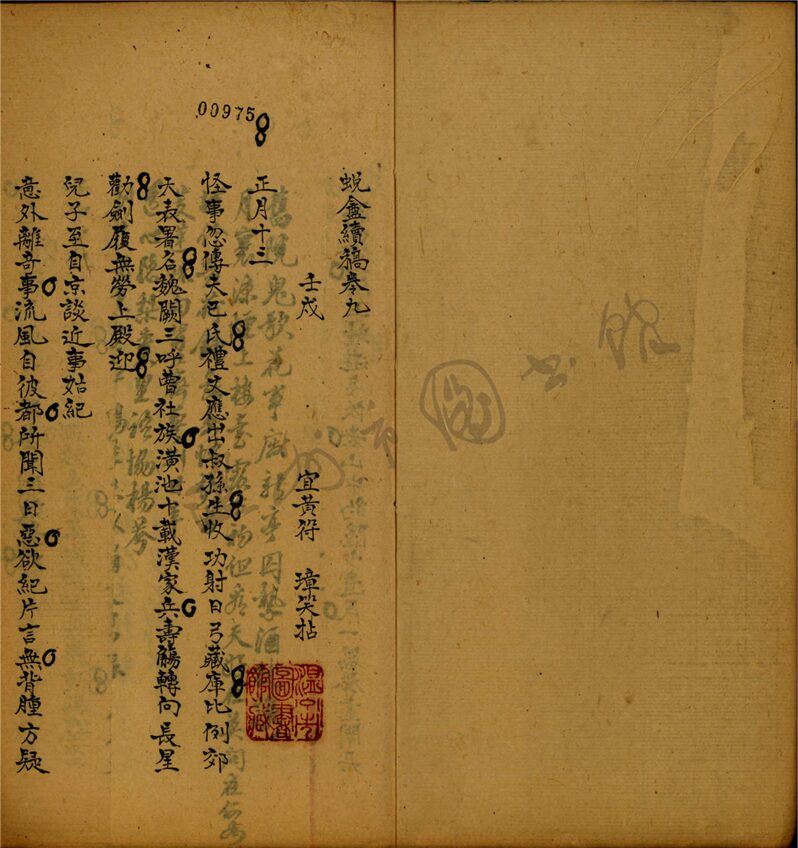 00975
蜕盦續稿卷九
壬戌
宜黃符璋笑拈
正月十三
怪事忽傳夫巳氏禮文應出叔孫生收功射日弓藏庫比例郊
天表署名魏闕三呼曹社族潢池十載漢家兵壽觴轉向長星
勸劍履無勞上殿迎
兒子至自京談近事姑紀
意外離奇事流風自彼都所聞三日惡欲紀片言無背腫方疑
溫州市圖書館藏